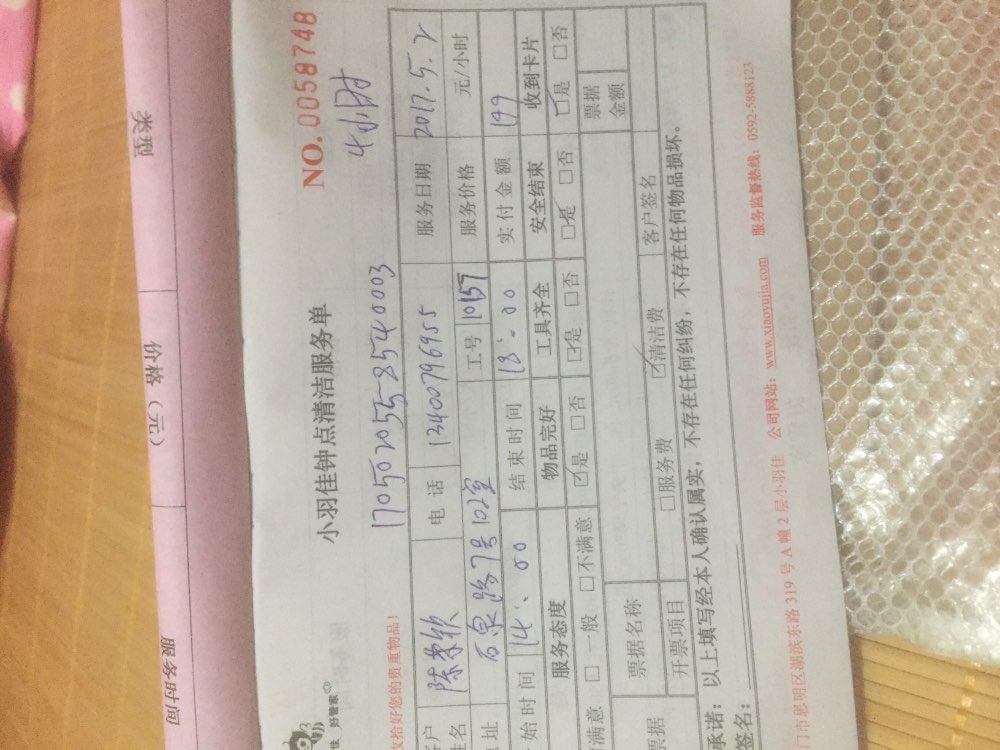 类型
价格（元）
服务时间
小羽佳钟点清洁服务单
NO. 0058748
好管家
4小时
17050205585400003
拾好您的贵重物品！
电话 13400796955 服务日期 2017.5.2
石泉路7号102室 工号 10157 服务价格 元/小时
始时间 14:00 结束时间 18:00 实付金额 199
服务态度 物品完好 工具齐全 安全结束 收到卡片
满意 □ 一般 □不满意 ☑是 □否 ☑是 □否 ☑是 □否 ☑是 □否
票据 票据名称 票据金额
开票项目 □服务费 ☑清洁费 客户签名
承诺：以上填写经本人确认属实，不存在任何纠纷，不存在任何物品损坏。
签名：
门市思明区湖滨东路 319 号 A 幢 2 层小羽佳 公司网站：www.xiaoyujia.com 服务监督热线：0592-5888123